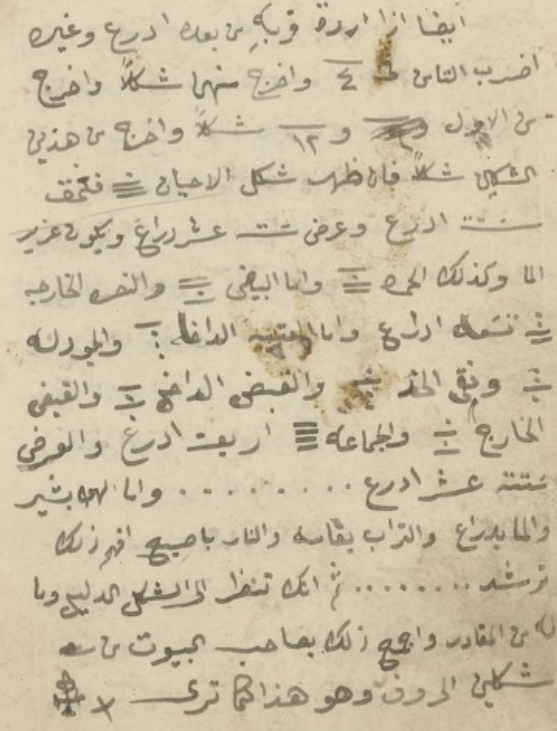 ايضا اذا اردة قربه من بعده ادرع وغيره
اضرب الثامن في ٤ واخرج منهما شكلاً واخرج
من الاول و ١٢ شكلاً واخرج من هذين
الشكلين شكلاً فان ظهر شكل الاحيان فعمق
ستت ادرع وعرض ستت عشر دراع ويكون غزير
الما وكذلك الحمره واما البياض والنصره الخارجه
تسعة ادراع واما العتبه الداخله
ونقى الخد والقبض الداخل والقبض
الخارج والجماعه اربعت ادرع والعرض
ستته عشر ادرع . . . . . . . . . واما الهوا بشبر
والما بدراع والتراب بقامه والنار باصبع افهم ذلك
ترشد . . . . . . . . ثم انك تنظر الى الشكل الدليل وما
له من المقادر واجمع ذلك بصاحب البيوت من
شكلين الحروف وهو هذا كما ترى